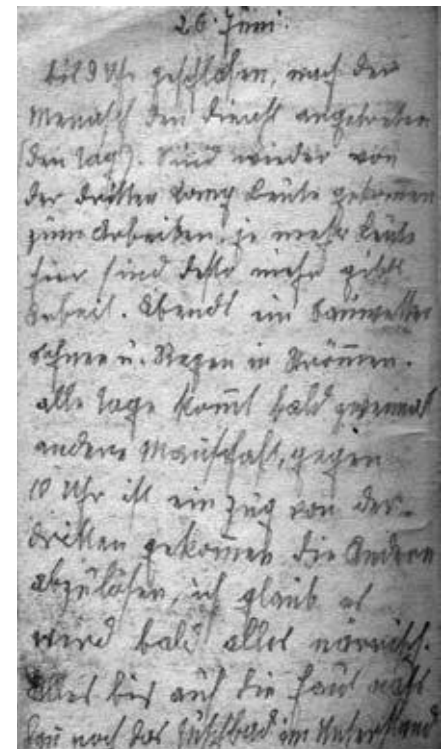 26. Juni.
bis 9 Uhr geschlafen, nach der
Menasch den dienst angetreten
(den tag). Sind wieder von
der dritten Comp Leute gekomen
zum Arbeiten, je mehr Leute
hier sind desto mehr gibts
Arbeit. Abends ein Sauwetter
Schnee u. Regen in Strömen.
alle tage komt bald zweimal
andere Manschaft, gegen
10 Uhr ist ein Zug von der
dritten gekomen die Andern
abzulösen, ich glaub es
wird bald alles närrisch.
Alles bis auf die Haut naß
noch das im Unterstand